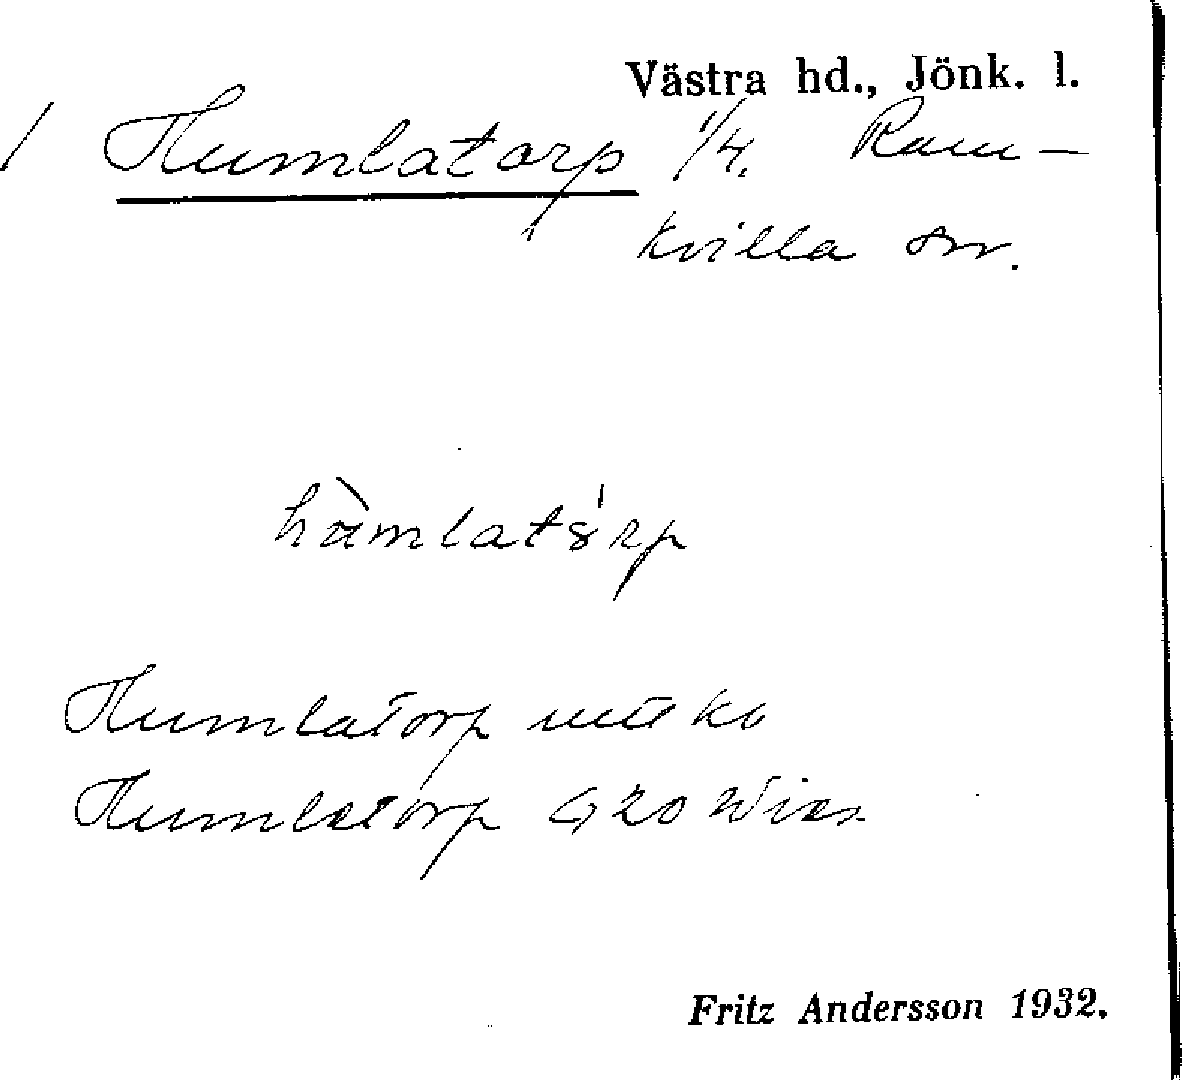 Västra hd., Jönk. l.
/ Humlatorp 1/4. Ram-
kvilla sn.
hàmlatórp
Humlatorp
Humlatorp G20
Fritz Andersson 1932.